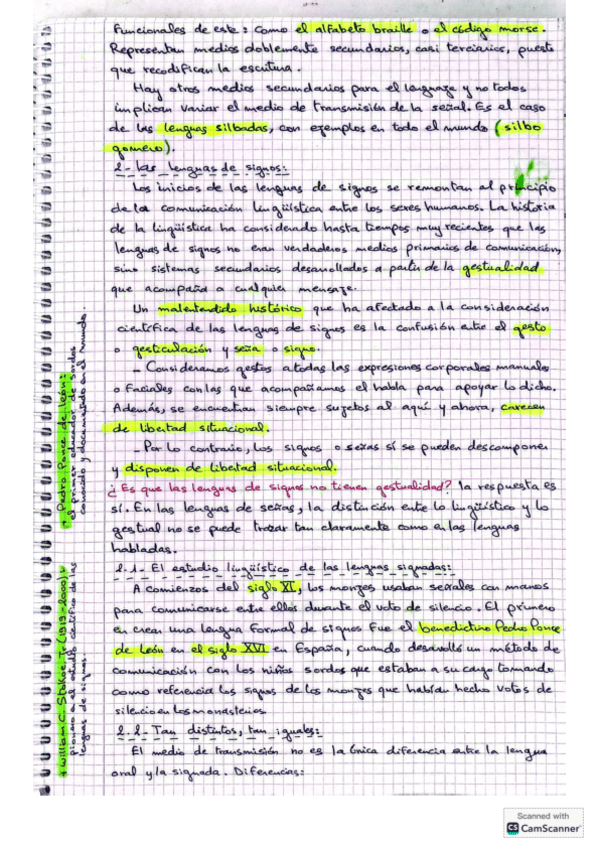 Funcionales de este: como el alfabeto braille o el código morse.
Representan medios doblemente secundarios, casi terciarios, puesto
que recodifican la escritura.
Hay otros medios secundarios para el lenguaje y no todos
implican variar el medio de transmisión de la señal. Es el caso
de las lenguas silbadas, con ejemplos en todo el mundo (silbo
gomero).
2- las lenguas de signos:
Los inicios de las lenguas de signos se remontan al principio
de la comunicación lingüística entre los seres humanos. La historia
de la lingüística ha considerado hasta tiempos muy recientes que las
lenguas de signos no eran verdaderos medios primarios de comunicación,
sino sistemas secundarios desarrollados a partir de la gestualidad
que acompaña a cualquier mensaje.
Un malentendido histórico que ha afectado a la consideración
científica de las lenguas de signos es la confusión entre el gesto
o gesticulación y seña o signo.
- Consideramos gestos a todas las expresiones corporales manuales
o faciales con las que acompañamos el habla para apoyar lo dicho.
Además, se encuentran siempre sujetos al aquí y ahora, carecen
de libertad situacional.
- Por lo contrario, los signos o señas sí se pueden descomponer
y disponen de libertad situacional.
¿Es que las lenguas de signos no tienen gestualidad? la respuesta es
sí. En las lenguas de señas, la distinción entre lo lingüístico y lo
gestual no se puede trazar tan claramente como en las lenguas
habladas.
2.1- El estudio lingüístico de las lenguas signadas:
A comienzos del siglo XI, los monjes usaban señales con manos
para comunicarse entre ellos durante el voto de silencio. El primero
en crear una lengua formal de signos fue el benedictino Pedro Ponce
de León en el siglo XVI en España, cuando desarrolló un método de
comunicación con los niños sordos que estaban a su cargo tomando
como referencia los signos de los monjes que habían hecho votos de
silencio en los monasterios.
2.2- Tan distintos, tan iguales:
El medio de transmisión no es la única diferencia entre la lengua
oral y la signada. Diferencias:
Pedro Ponce de León:
el primer educador de sordos
conocido y documentado en el mundo.
William C. Stokoe, Jr (1919-2000),
pionero en el estudio científico de las
lenguas de signos.
Scanned with
CS CamScanner